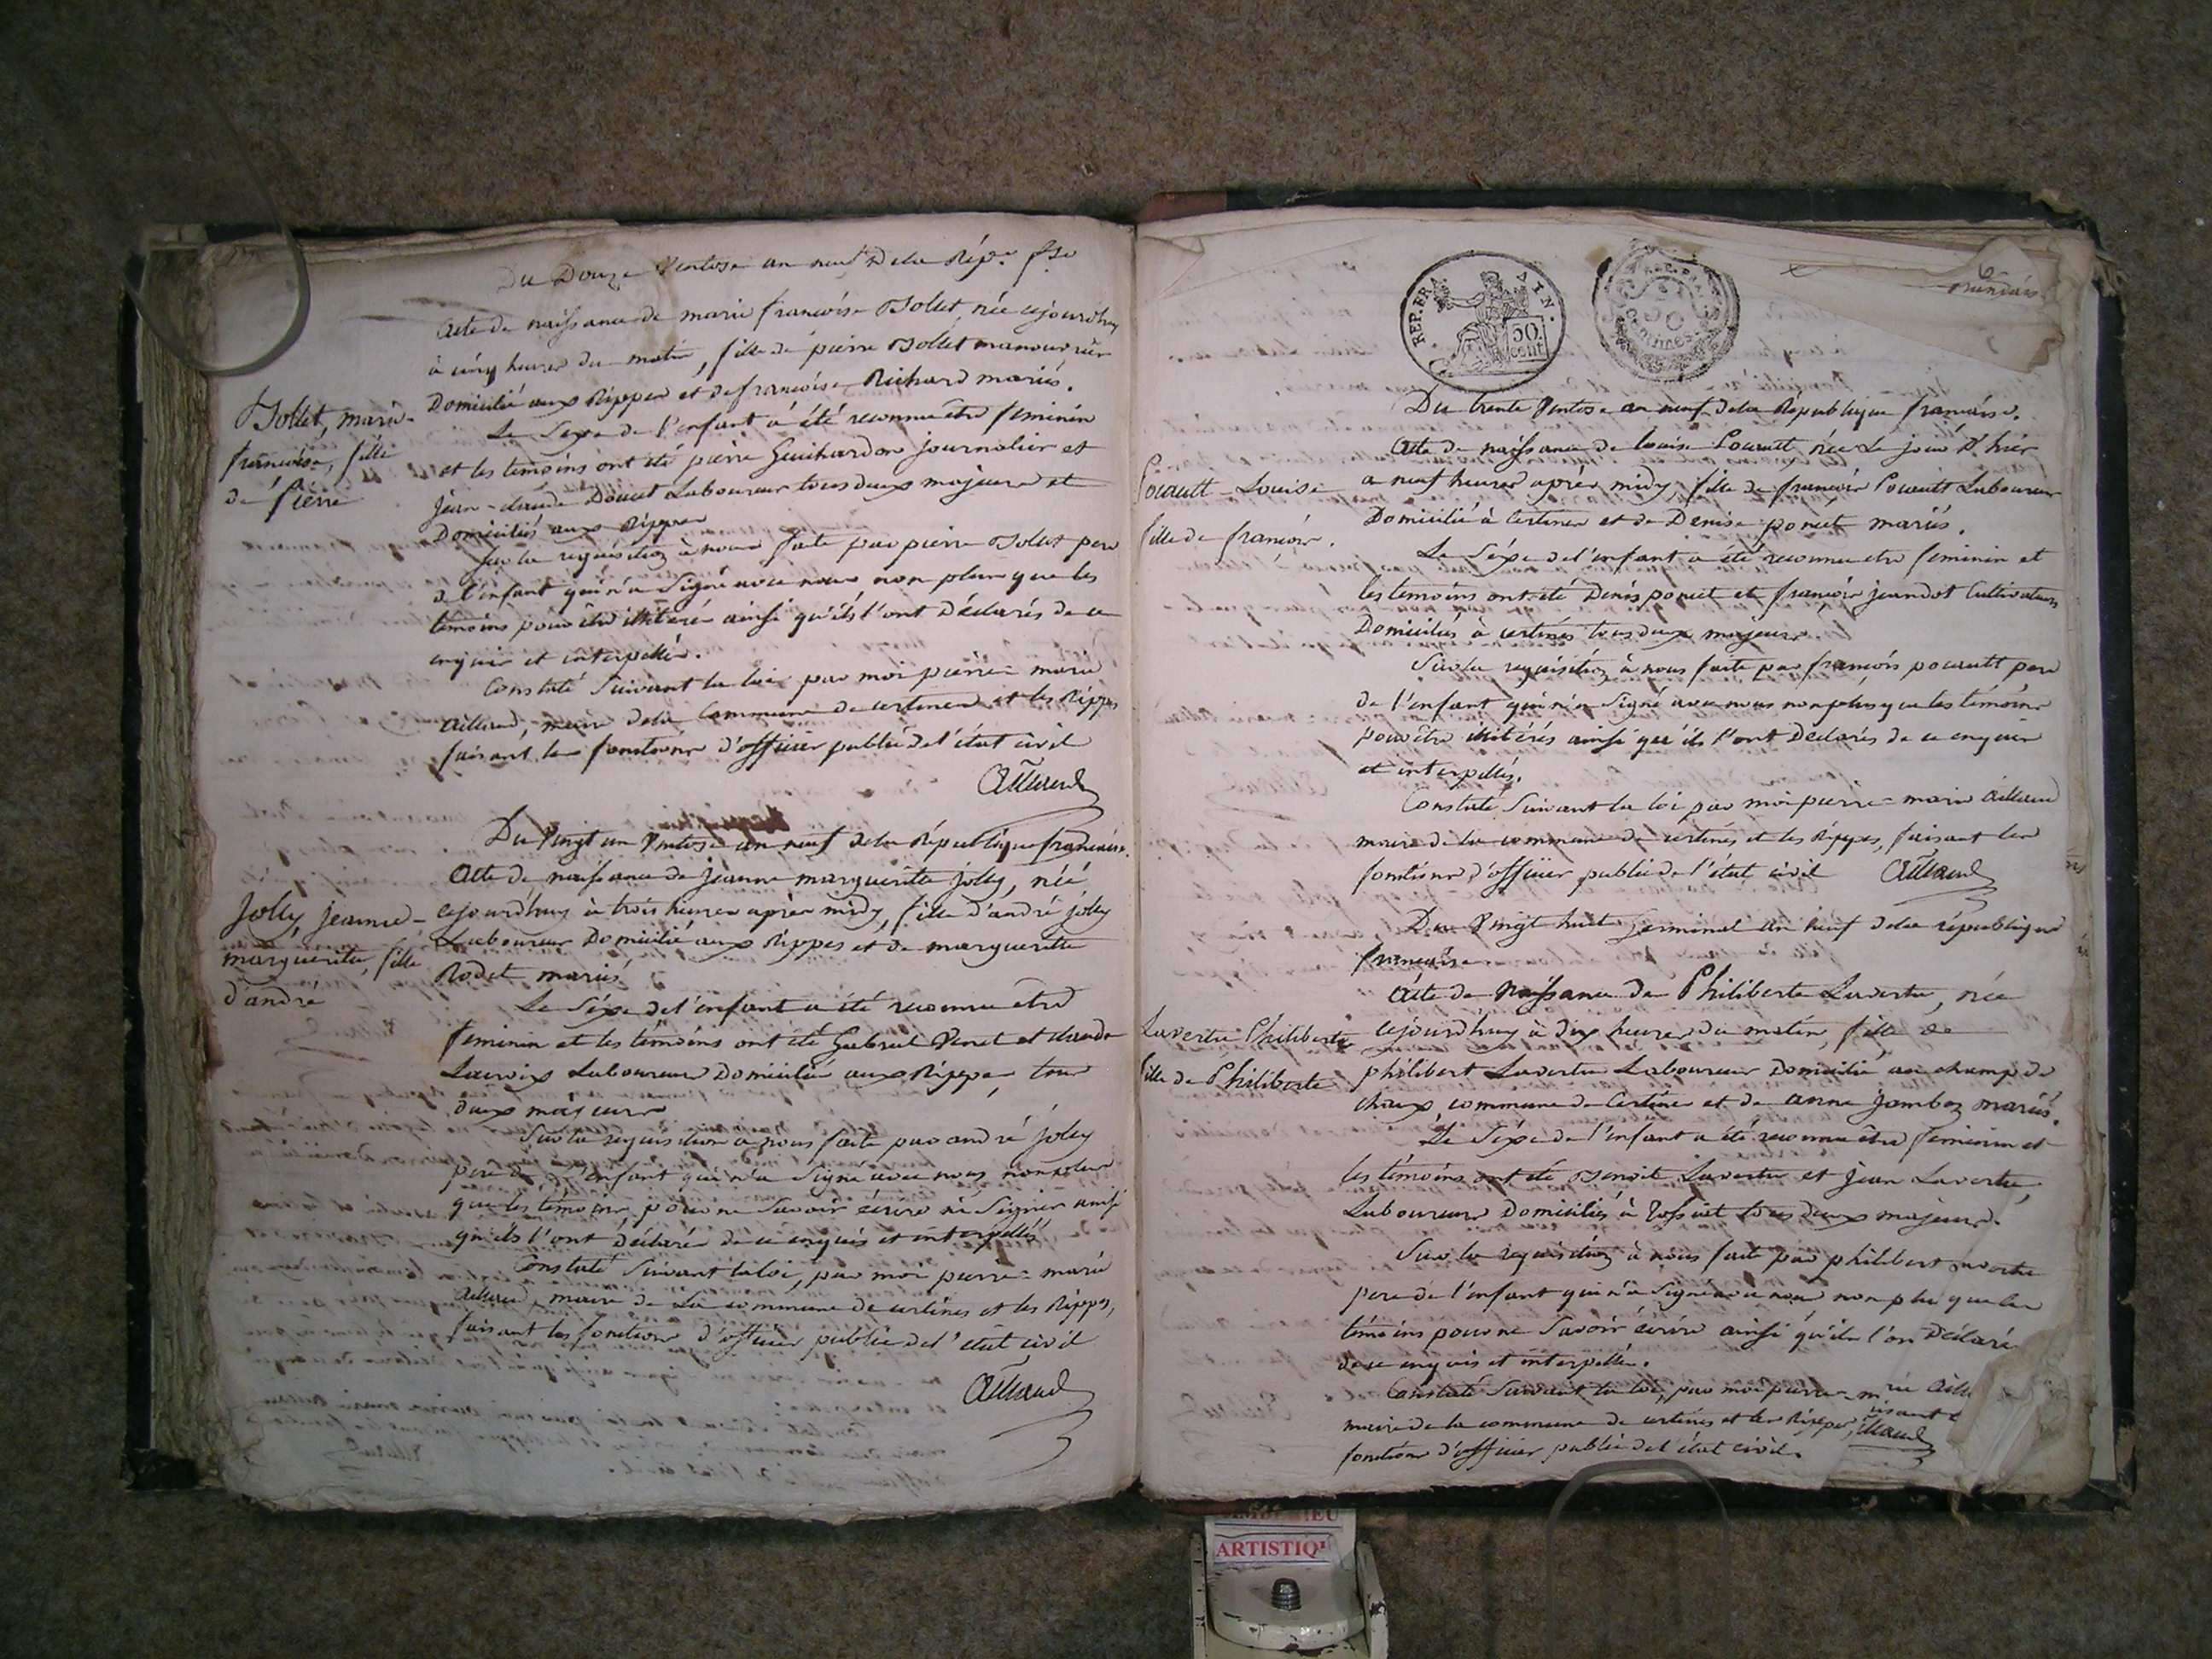 Du Douze Ventose an neuf De la Rép.e f.se
Acte de naissance de marie francoise Bollet, née cejourdhuy
à cinq heures du matin, fille de pierre Bollet manouvrier
Domicilié aux Rippes et de francoise Richard mariés.
Bollet, marie-
francoise, fille
de Pierre
Le Sexe de l'enfant à été reconnu être feminin
et les temoins ont été pierre Guichardon journalier et
jean-claude Doucet Laboureur tous deux majeurs et
Domiciliés aux Rippes
Sur la requisition à nous faite par pierre Bollet pere
de l'enfant qui n'a Signé avec nous non plus que les
témoins pour être illitérés ainsi qu'ils l'ont Déclarés de ce
enquis et interpellés.
Constaté Suivant la loi par moi pierre-marie
Aillaud, maire dela Commune de certines et les Rippes
faisant les fonctions d'officier public de l'état civil
Aillaud
Du Vingt un Ventose an neuf dela République francaise.
Acte de naissance de jeanne marguerite jolly, née
cejourdhuy à trois heures après midy, fille d'andré jolly
Laboureur Domicilié aux Rippes et de marguerite
Rodet mariés
Jolly, jeanne-
marguerite, fille
d'andré
Le Séxe de l'enfant a été reconnu etre
feminin et les témoins ont été Gabriel Venet et claude
Lacroix Laboureurs Domiciliés aux Rippes, tous
deux majeurs
Sur la requisition a nous faite par andré jolly
pere de l'enfant qui n'a Signé avec nous non plus
que les témoins pour ne Savoir écrire ni Signer ainsi
qu'ils l'ont déclarés de ce enquis et interpellés
Constaté Suivant la loi, par moi pierre-marie
Aillaud, maire de La commune de certines et les Rippes,
faisant les fonctions d'officier public de l'état civil
Aillaud
REP. FRA
50
cent
Du trente Ventose an neuf dela République francaise.
Acte de naissance de Louise Pouault née Le jour d'hier
a neuf heures après midy, fille de francois Pouault Laboureur
Domicilié à Certines et de Denise poncet mariés.
Pouault Louise
fille de francois.
Le Séxe de l'enfant a été reconnu etre feminin et
les temoins ont été Denis poncet et francois jeandot Cultivateurs
Domiciliés à certines tous deux majeurs.
Sur la requisition à nous faite par francois pouault pere
de l'enfant qui n'a Signé avec nous non plus que les témoins
pour être illitérés ainsi qu'ils l'ont Déclarés de ce enquis
et interpellés.
Constaté Suivant la loi par moi pierre-marie Aillaud
maire de la commune de certines et les Rippes, faisant les
fonctions d'officier public de l'état civil Aillaud
Du Vingt huit Germinal an neuf dela république
francaise
Acte de Naissance de Philiberte Lavertu, née
cejourdhuy à dix heures du matin, fille de
philibert Lavertu Laboureur Domicilié au champ de
chaux, commune de Certines et de anne jambon mariés.
Lavertu Philiberte
fille de Philiberte
Le Séxe de l'enfant a été reconnu être feminin et
les témoins ont été Benoit Lavertu et Jean Lavertu,
Laboureurs Domiciliés à Tossiat tous deux majeurs.
Sur la requisition à nous faite par philibert
pere de l'enfant qui n'a Signé avec nous non plus que les
témoins pour ne Savoir écrire ainsi qu'ils l'on Déclaré
de ce enquis et interpellés.
Constaté Suivant la loi, par moi pierre-
maire de la commune de certines et les Rippes,
fonctions d'officier public de l'état civil.
ARTISTIQ